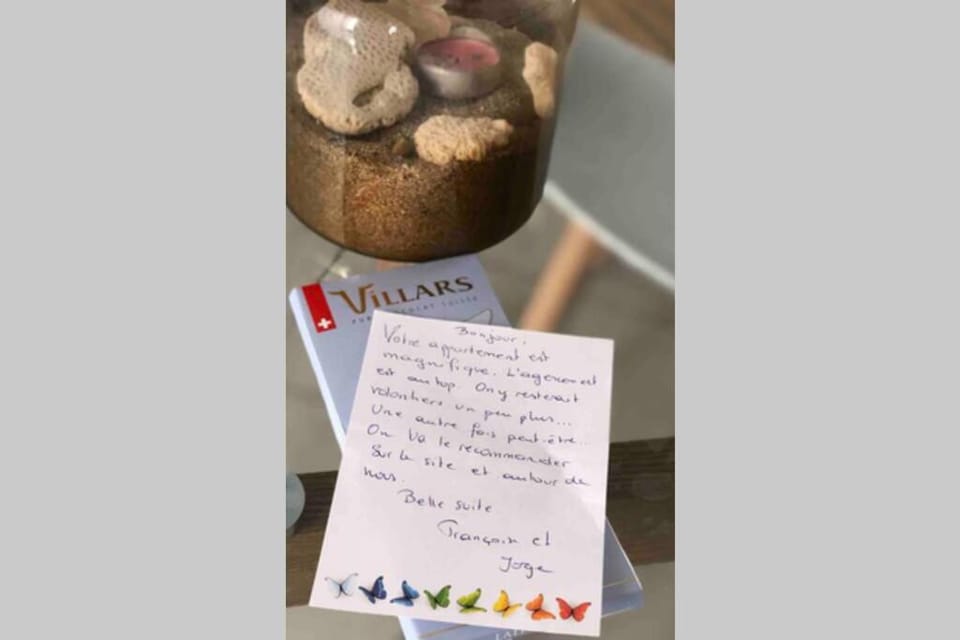 VILLARS
PUR CHOCOLAT SUISSE
Bonjour,
Votre appartement est
magnifique. L'agencement
est au top. On y resterait
volontiers un peu plus...
Une autre fois peut-être...
On va le recommander
sur le site et autour de
nous.
Belle suite
Françoise et
Jorge